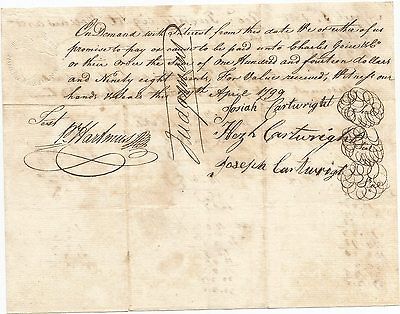 On Demand with Interest from this date We or either of us
promise to pay or cause to be paid unto Charles
or their order the sum of One Hundred and fourteen dollars
and Ninety eight Cents, For Value received, Witness our
hands & seals this April 1799
Josiah Cartwright
Test
Hezh Cartwright
Joseph Cartwright
Judgment